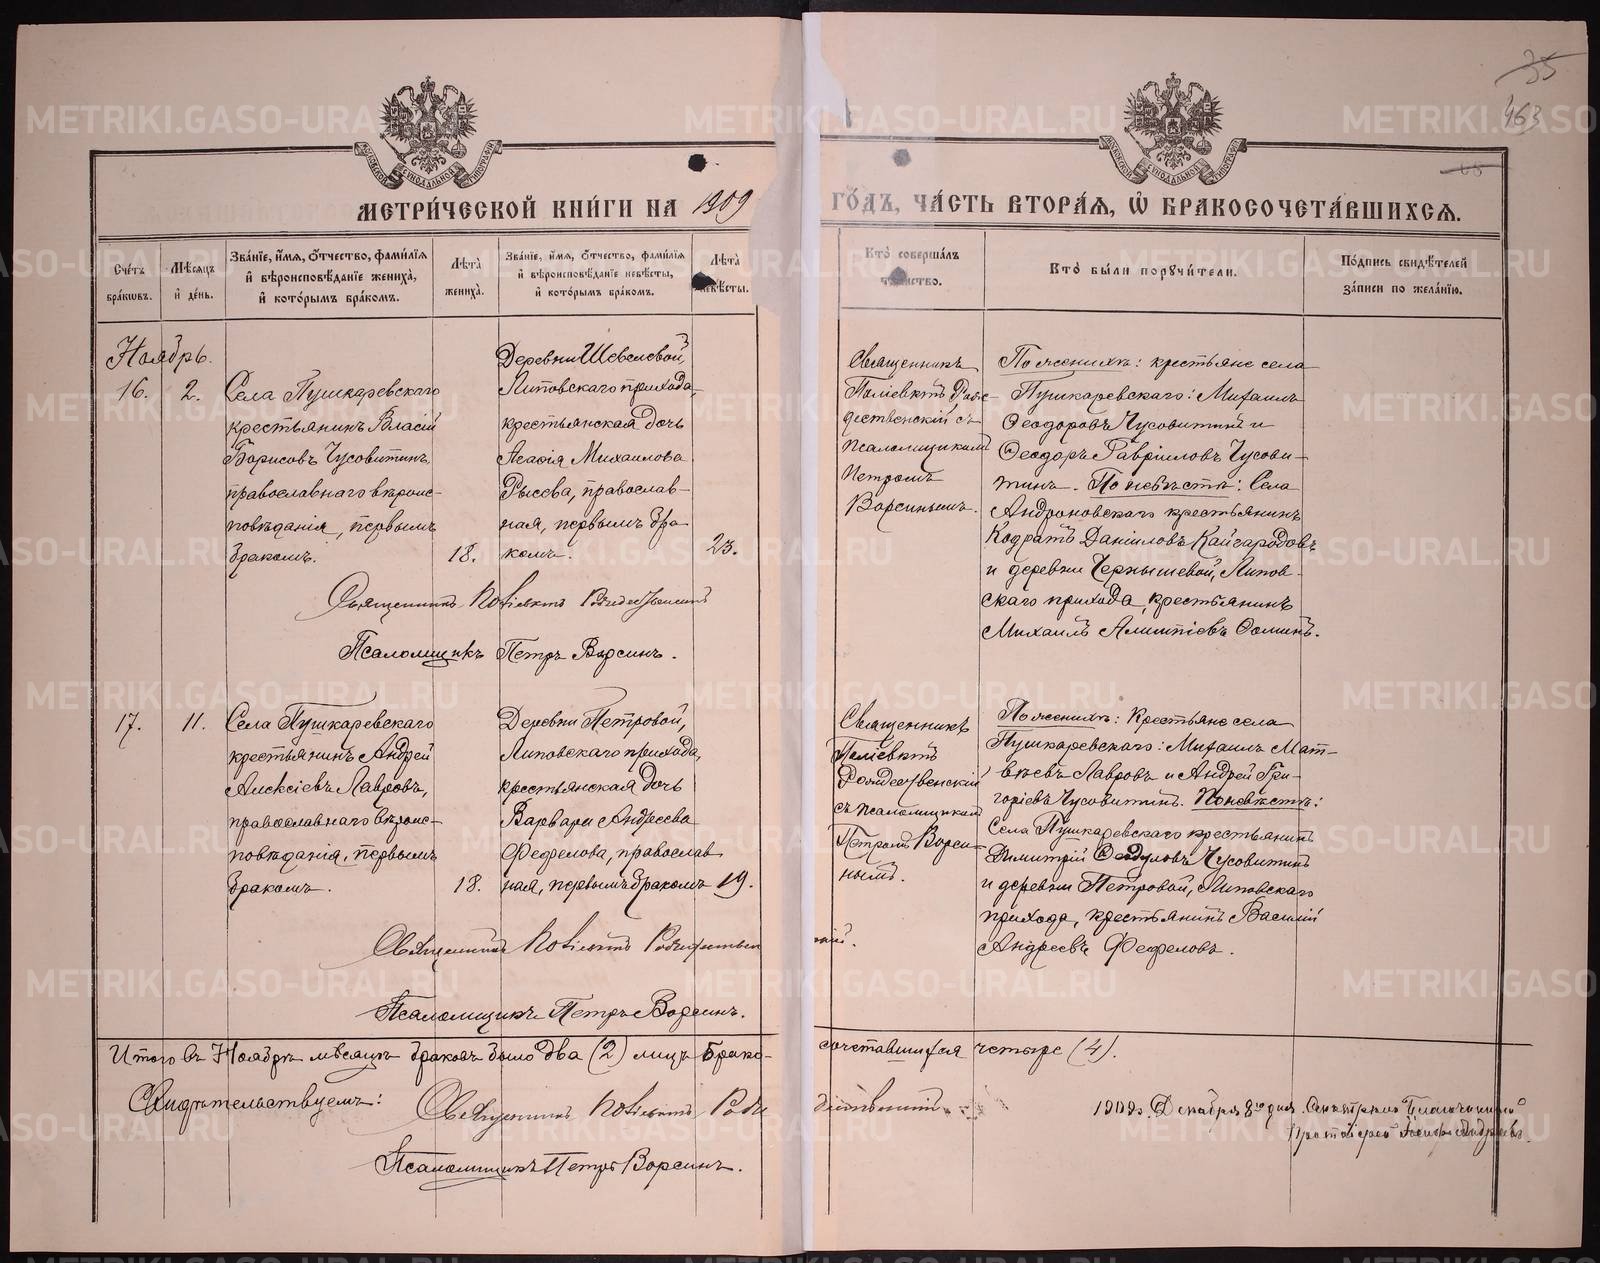 35
463
МЕТРИ́ЧЕСКОЙ КНИ́ГИ НА 1909
ГО́ДЪ, ЧА́СТЬ ВТОРА́Я, Ѡ҆ БРАКОСОЧЕТА́ВШИХСЯ.
Сче́тъ бра́кѡвъ.
Мѣ́сяцъ и҆ де́нь.
Зва́нїе, и҆́мя, ѻ҆́тчество, фами́лїя
и҆ вѣроисповѣ́данїе жениха̀,
и҆ кото́рымъ бра́комъ.
Лѣ́та жениха̀.
Зва́нїе, и҆́мя, ѻ҆́тчество, фами́лїя
и҆ вѣроисповѣ́данїе невѣ́сты,
и҆ кото́рымъ бра́комъ.
Лѣ́та невѣ́сты.
Кто̀ соверша́лъ
таинство.
Кто̀ бы́ли порꙋчи́тели.
По́дпись свидѣ́телей
за́писи по жела́нїю.
Ноябрь.
16.
2.
Села Пушкаревскаго
крестьянинъ Власій
Борисовъ Чусовитинъ,
православнаго вѣроис-
повѣданія, первымъ
бракомъ.
18.
Деревни Шевелевой,
Липовскаго прихода,
крестьянская дочь
Михаилова
Рысева, православ-
ная, первымъ бра
комъ.
23.
Священникъ
Поліевктъ Рож-
дественскій съ
псаломщикомъ
Петромъ
Ворсинымъ.
По женихѣ: крестьяне села
Пушкаревскаго: Михаилъ
Ѳеодоровъ Чусовитинъ и
Ѳеодоръ Гавріиловъ Чусови-
тинъ. По невѣстѣ: Села
Андроновскаго крестьянинъ
Кодратъ Даніиловъ Кайгародовъ
и деревни Чернышевой, Липов-
скаго прихода, крестьянинъ
Михаилъ Алимпіевъ Ѳоминъ.
Священникъ Поліевктъ Рождественскій
Псаломщикъ Петръ Ворсинъ.
17.
11.
Села Пушкаревскаго
крестьянинъ Андрей
Алексіевъ Лавровъ,
православнаго вѣроис-
повѣданія, первымъ
бракомъ.
18.
Деревни Петровой,
Липовскаго прихода,
крестьянская дочь
Варвара Андреева
Фефелова, православ
ная, первымъ бракомъ
19.
Священникъ
Поліевктъ
Рождественскій
съ псаломщикомъ
Петромъ Ворси-
нымъ.
По женихѣ: Крестьяне села
Пушкаревскаго: Михаилъ Мат-
вѣевъ Лавровъ и Андрей Гри-
горіевъ Чусовитинъ. По невѣстѣ:
Села Пушкаревскаго крестьянинъ
Димитрій Ѳедуловъ Чусовитинъ
и деревни Петровой, Липовскаго
прихода, крестьянинъ Василій
Андреевъ Фефеловъ.
Священникъ Поліевктъ Рождествен
Псаломщикъ Петръ Ворсинъ.
Итого въ Ноябрѣ мѣсяцѣ браковъ было два (2) лицъ брако-
сочетавшихся четыре (4).
Свидѣтельствуемъ:
Священникъ Поліевктъ Рожде
дественскій
Псаломщикъ Петръ Ворсинъ.
1909 г. Декабря 8го дня. Смотрѣлъ Благочинный
Протоіерей Андреевъ.
METRIKI.GASO-URAL.RU